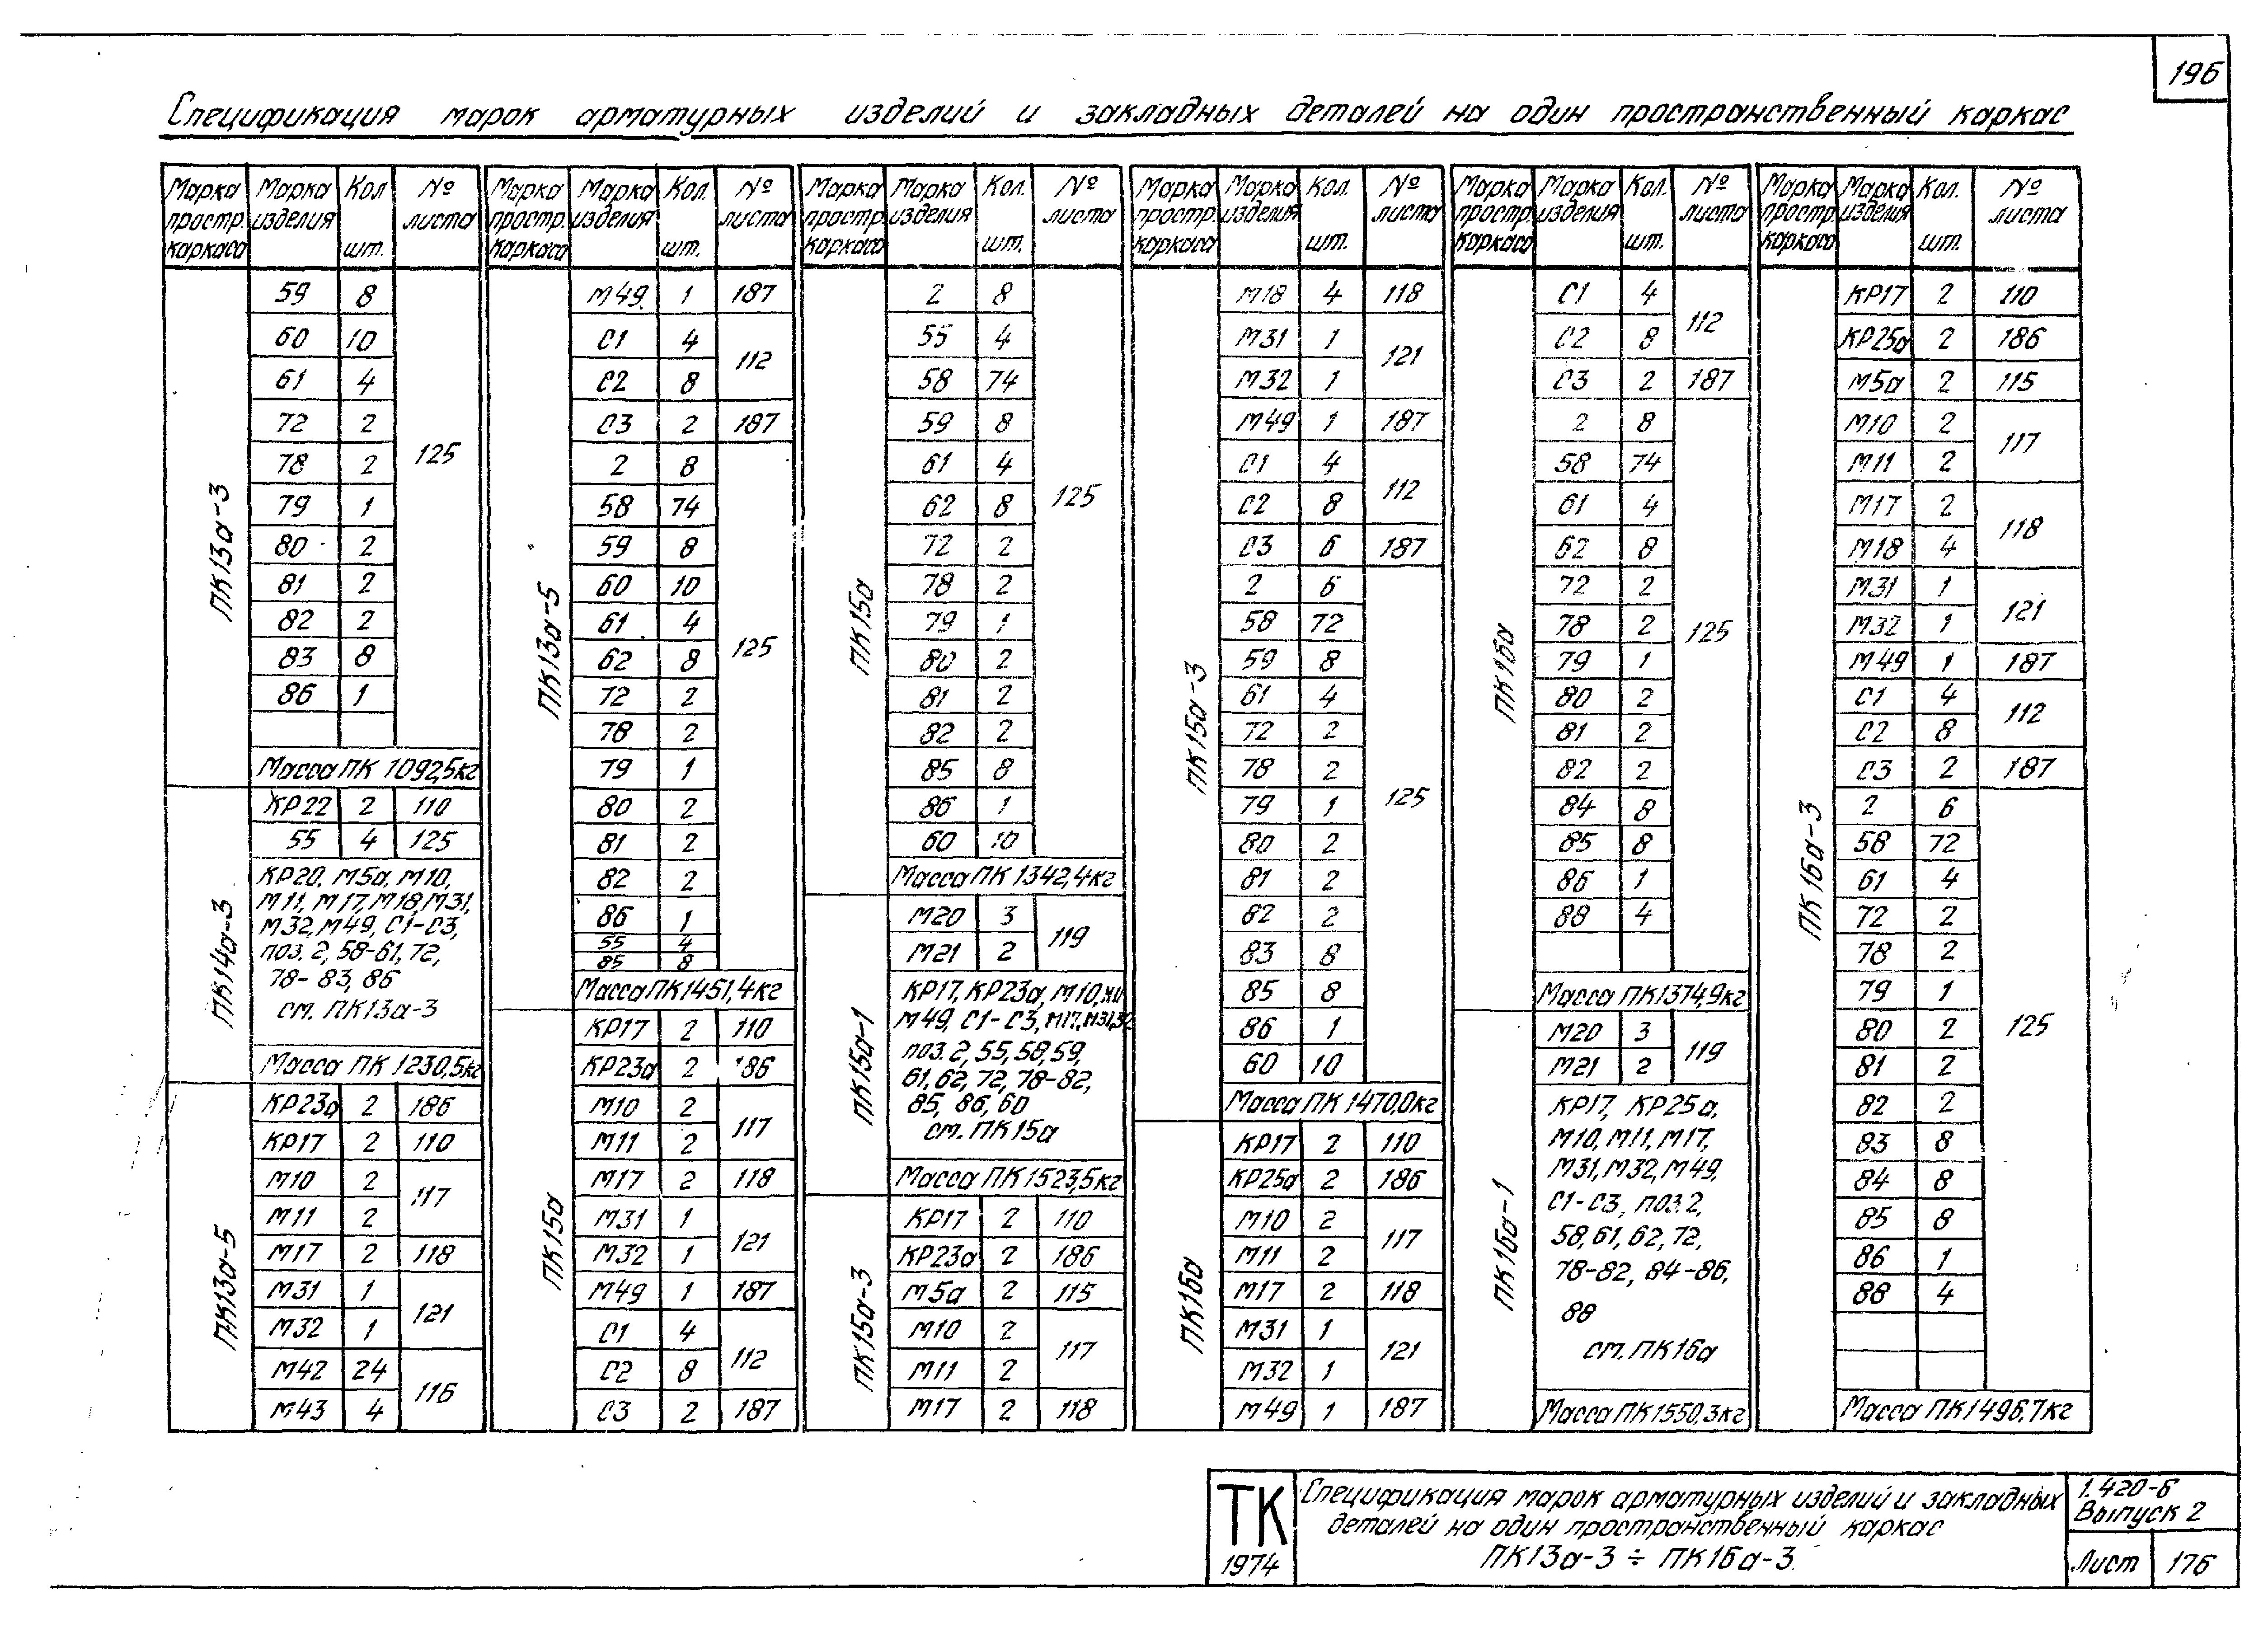 196
Спецификация марок арматурных изделий и закладных деталей на один пространственный каркас
Марка простр. каркаса | Марка изделия | Кол. шт. | № листа
ПК13а-3
59 8
60 10
61 4
72 2
78 2
79 1
80 2
81 2
82 2
83 8
86 1
125
Масса ПК 1092,5кг
ПК14а-3
КР22 2 110
55 4 125
КР20, М5а, М10,
М11, М17, М18, М31,
М32, М49, С1-С3,
поз. 2, 58-61, 72,
78-83, 86
см. ПК13а-3
Масса ПК 1230,5кг
ПК13а-5
КР23а 2 186
КР17 2 110
М10 2
М11 2
117
М17 2 118
М31 1
М32 1
121
М42 24
М43 4
116
Марка простр. каркаса | Марка изделия | Кол. шт. | № листа
ПК13а-5
М49 1 187
С1 4
С2 8
112
С3 2 187
2 8
58 74
59 8
60 10
61 4
62 8
72 2
78 2
79 1
80 2
81 2
82 2
86 1
55 4
85 8
125
Масса ПК1451,4кг
ПК15а
КР17 2 110
КР23а 2 186
М10 2
М11 2
117
М17 2 118
М31 1
М32 1
121
М49 1 187
С1 4
С2 8
112
С3 2 187
Марка простр. каркаса | Марка изделия | Кол. шт. | № листа
ПК15а
2 8
55 4
58 74
59 8
61 4
62 8
72 2
78 2
79 1
80 2
81 2
82 2
85 8
86 1
60 10
125
Масса ПК 1342,4кг
ПК15а-1
М20 3
М21 2
119
КР17, КР23а, М10, М11
М49, С1-С3, М17, М31,32
поз. 2, 55, 58, 59,
61, 62, 72, 78-82,
85, 86, 60
см. ПК15а
Масса ПК 1523,5кг
ПК15а-3
КР17 2 110
КР23а 2 186
М5а 2 115
М10 2
М11 2
117
М17 2 118
Марка простр. каркаса | Марка изделия | Кол. шт. | № листа
ПК15а-3
М18 4 118
М31 1
М32 1
121
М49 1 187
С1 4
С2 8
112
С3 6 187
2 6
58 72
59 8
61 4
72 2
78 2
79 1
80 2
81 2
82 2
83 8
85 8
86 1
60 10
125
Масса ПК 1470,0кг
ПК16а
КР17 2 110
КР25а 2 186
М10 2
М11 2
117
М17 2 118
М31 1
М32 1
121
М49 1 187
Марка простр. каркаса | Марка изделия | Кол. шт. | № листа
ПК16а
С1 4
С2 8
112
С3 2 187
2 8
58 74
61 4
62 8
72 2
78 2
79 1
80 2
81 2
82 2
84 8
85 8
86 1
88 4
125
Масса ПК1374,9кг
ПК16а-1
М20 3
М21 2
119
КР17, КР25а,
М10, М11, М17,
М31, М32, М49,
С1-С3, поз. 2,
58, 61, 62, 72,
78-82, 84-86,
88
см. ПК16а
Масса ПК1550,3кг
Марка простр. каркаса | Марка изделия | Кол. шт. | № листа
ПК16а-3
КР17 2 110
КР25а 2 186
М5а 2 115
М10 2
М11 2
117
М17 2
М18 4
118
М31 1
М32 1
121
М49 1 187
С1 4
С2 8
112
С3 2 187
2 6
58 72
61 4
72 2
78 2
79 1
80 2
81 2
82 2
83 8
84 8
85 8
86 1
88 4
125
Масса ПК1496,7кг
ТК
1974
Спецификация марок арматурных изделий и закладных
деталей на один пространственный каркас
ПК13а-3 ÷ ПК16а-3
1.420-6
Выпуск 2
Лист 176